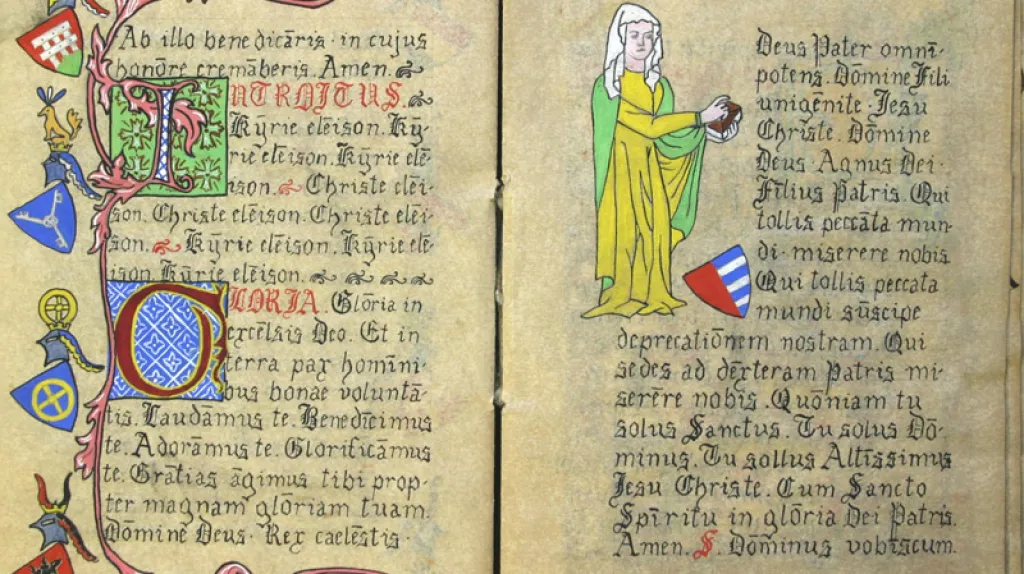 Ab illo benedicāris · in cujus
honōre cremāberis. Amen.
INTROITUS.
Kȳrie elēison. Kȳ-
rie elēison. Kȳrie elē-
ison. Christe elēi-
son. Christe elēison. Christe elēi-
son. Kȳrie elēison. Kȳrie elē-
ison. Kȳrie elēison.
GLORIA. Glōria in
excēlsis Deo. Et in
terra pax homini-
bus bonae voluntā-
tis. Laudāmus te. Benedīcimus
te. Adorāmus te. Glorificāmus
te. Grātias āgimus tibi prop-
ter magnam glōriam tuam.
Dōmine Deus · Rex caelēstis ·
Deus Pater omnī-
potens. Dōmine Fili
unigēnite · Jesu
Christe. Dōmine
Deus · Agnus Dei ·
Fīlius Patris. Qui
tollis peccāta mun-
di · miserere nobis
Qui tollis peccata
mundi sūscipe
deprecatiōnem nostram. Qui
sedes ad dēxteram Patris mi-
serēre nobīs. Quōniam tu
solus Sanctus. Tu solus Dō-
minus. Tu sollus Altīssimus
Jesu Christe. Cum Sancto
Spīritu in glōria Dei Patris.
Amen. S. Dōminus vobīscum.